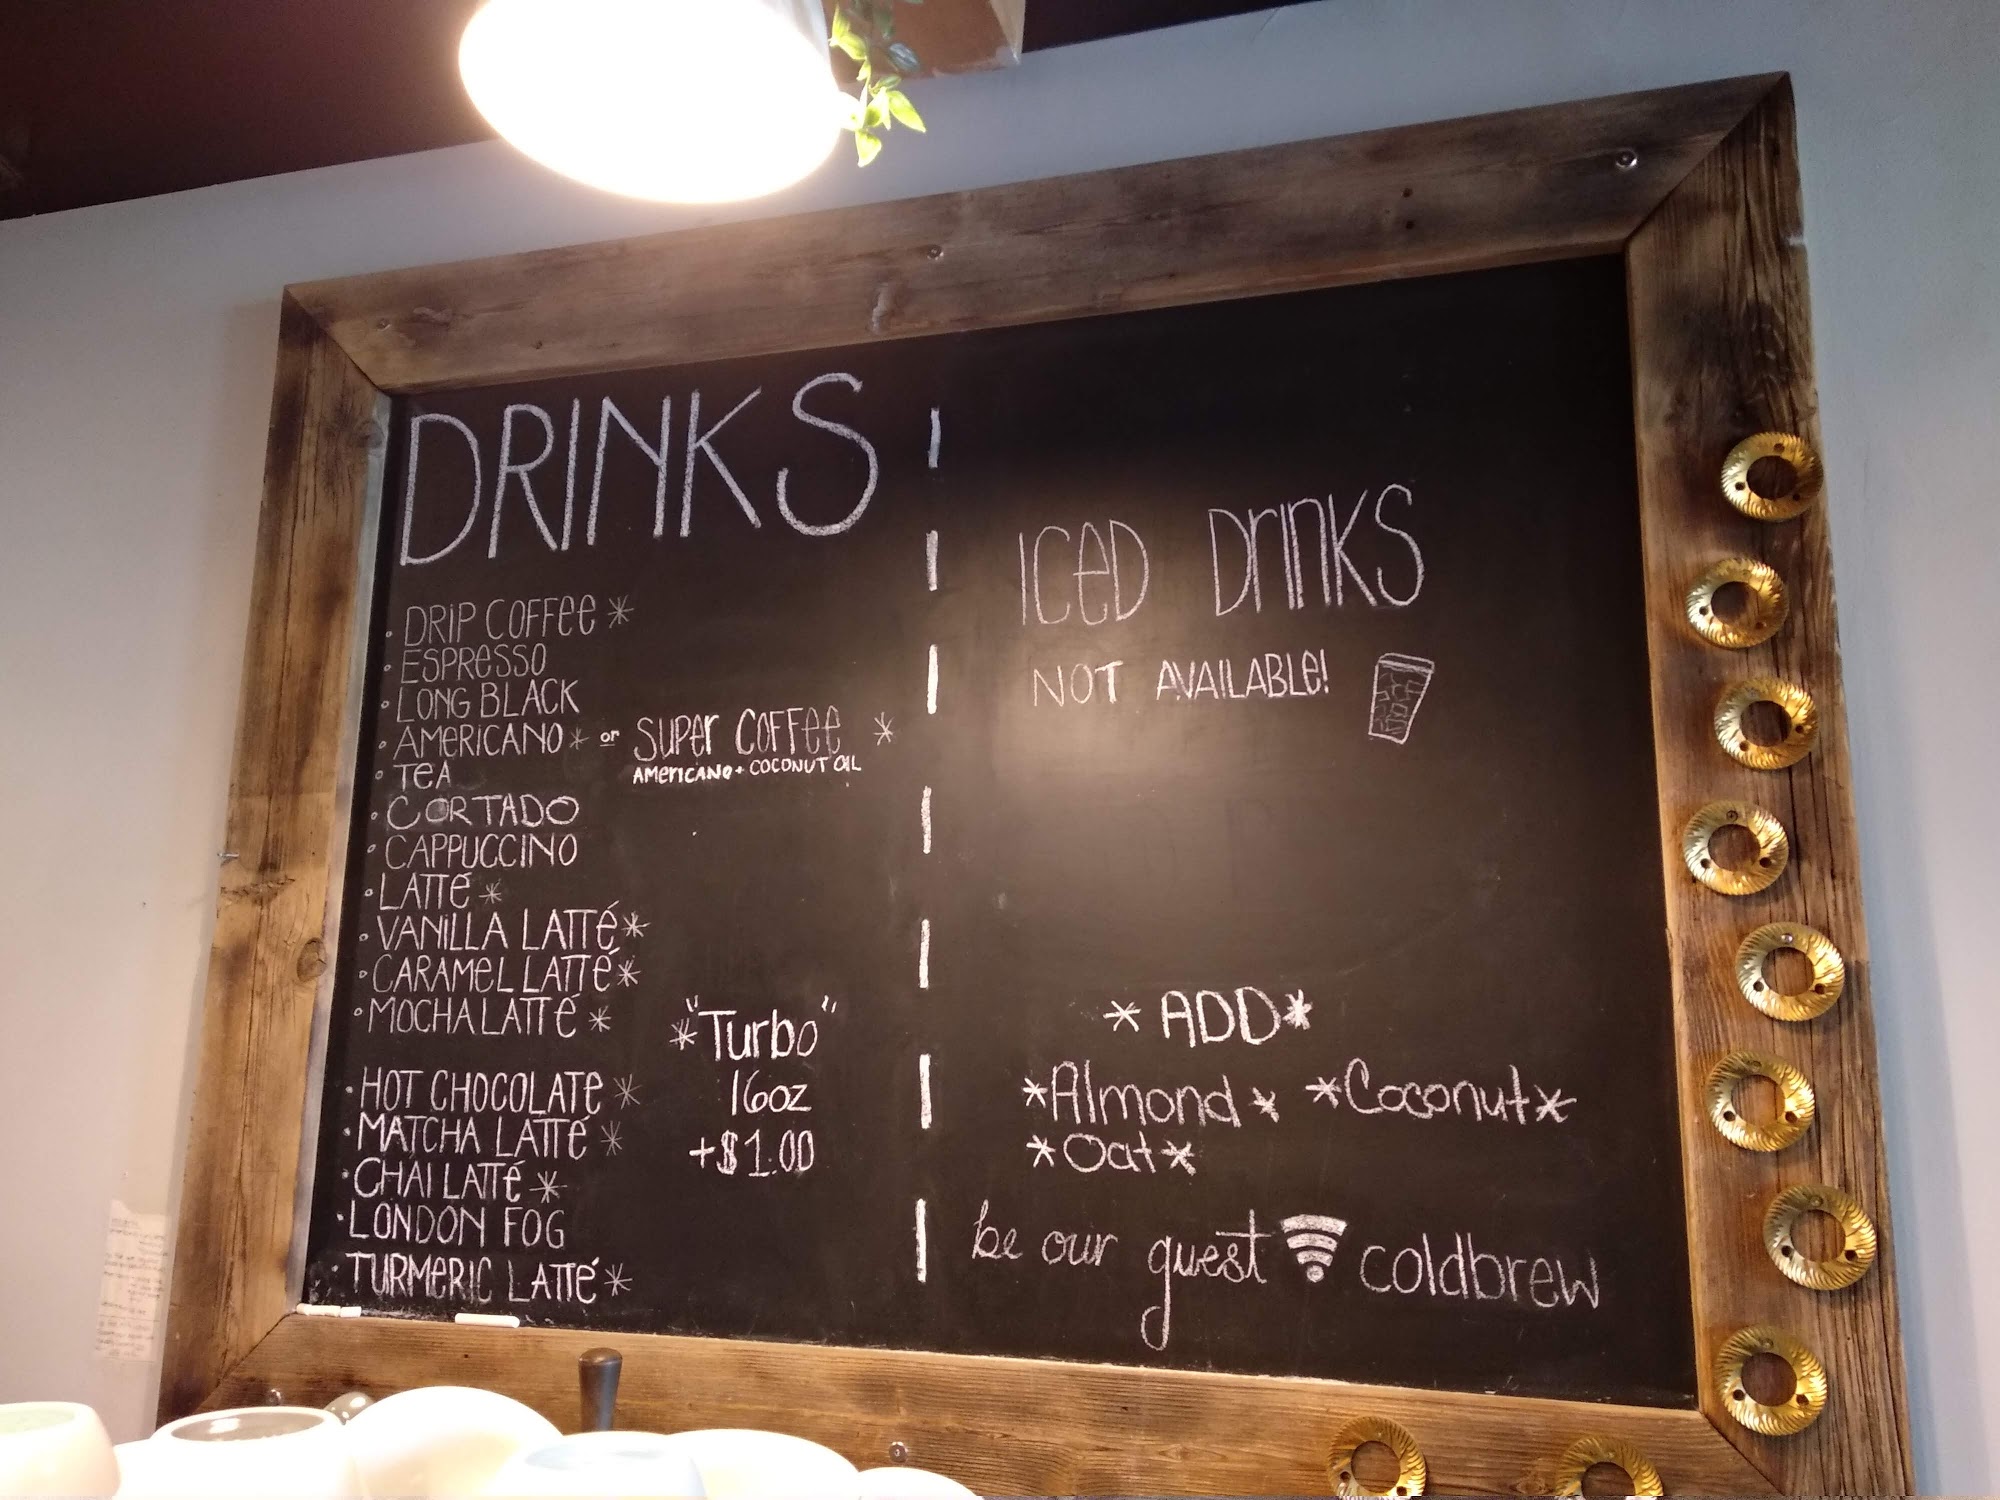 DRINKS
DRIP COFFEE *
ESPRESSO
LONG BLACK
AMERICANO * or SUPER COFFEE *
AMERICANO + COCONUT OIL
TEA
CORTADO
CAPPUCCINO
LATTÉ *
VANILLA LATTÉ *
CARAMEL LATTÉ *
MOCHA LATTÉ *
HOT CHOCOLATE *
MATCHA LATTÉ *
CHAI LATTÉ *
LONDON FOG
TURMERIC LATTÉ *
* "Turbo"
16oz
+$1.00
ICED DRINKS
NOT AVAILABLE!
* ADD *
*Almond* *Coconut*
*Oat*
be our guest coldbrew